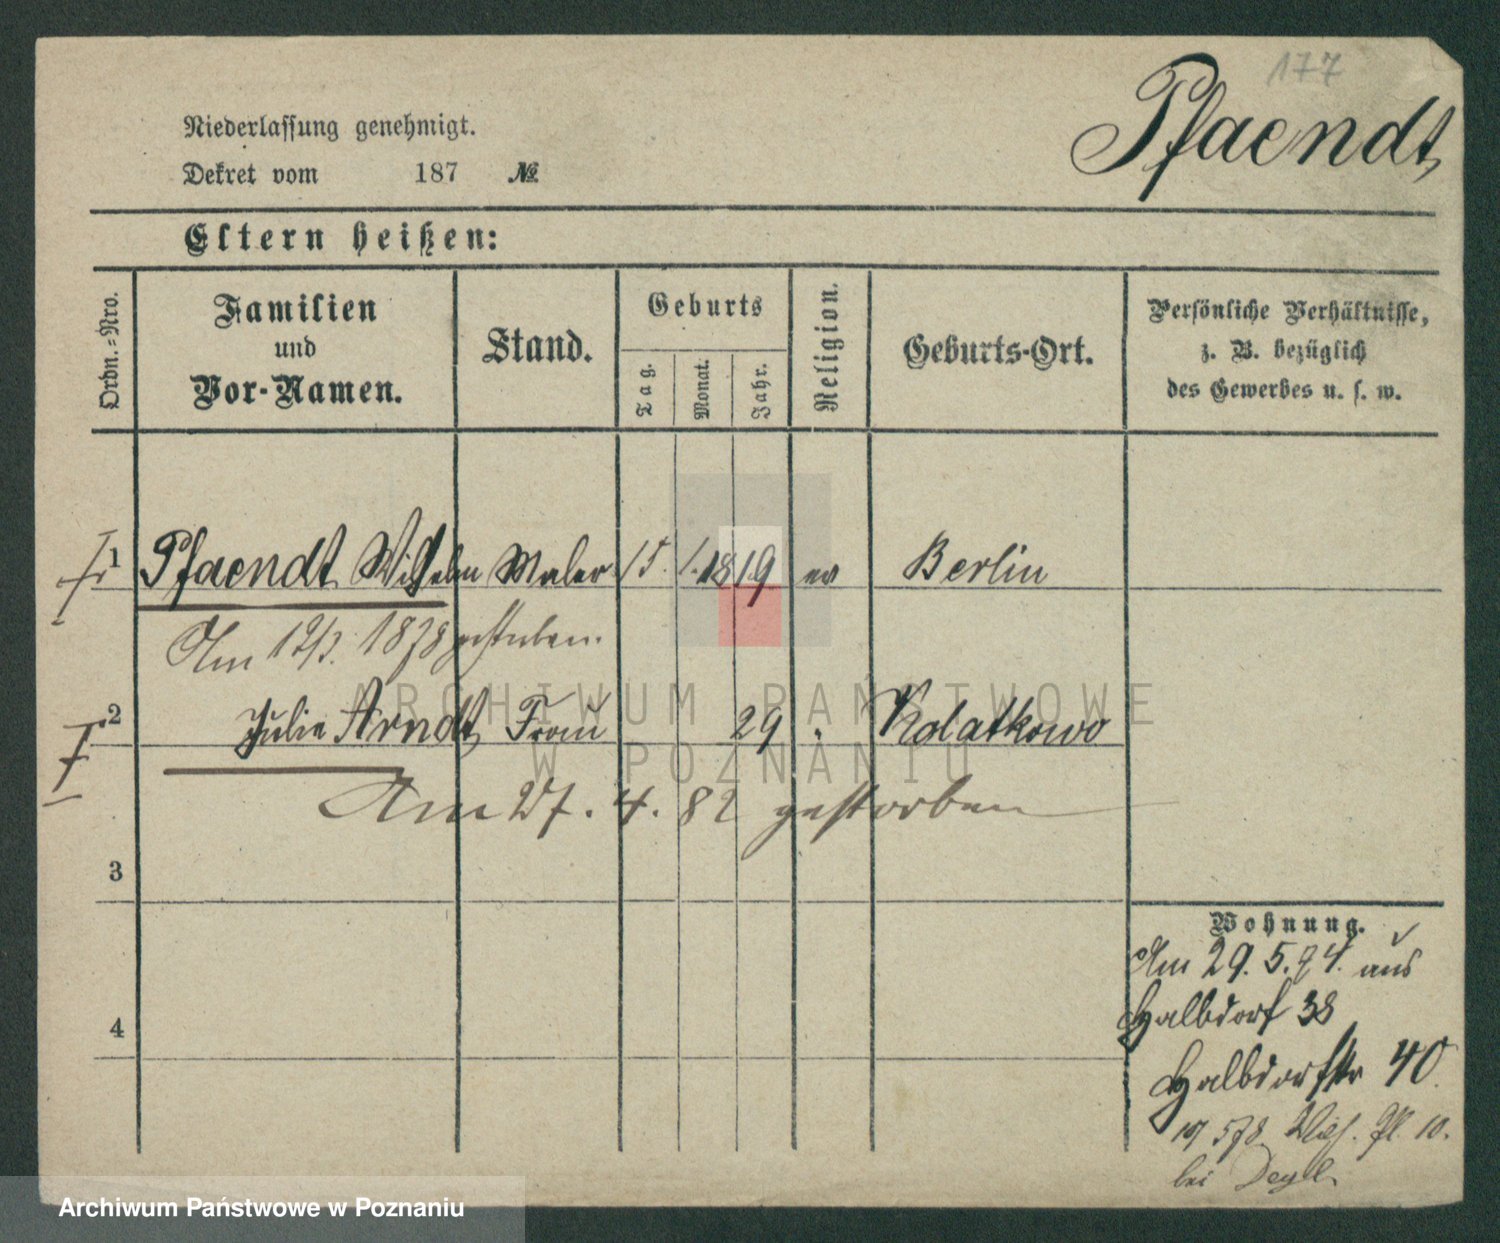 177
Pfaendt
Niederlassung genehmigt.
Dekret vom 187 №
Eltern heißen:
Ordn.=Nro.
Familien
und
Vor-Namen.
Stand.
Geburts
Tag.
Monat.
Jahr.
Religion.
Geburts-Ort.
Persönliche Verhältnisse,
z. B. bezüglich
des Gewerbes u. s. w.
1 Pfaendt Wilhelm Maler 15. 1. 1819 ev Berlin
Am 12/3. 1878 gestorben.
2 Julie Arndt Frau 29 " Kolatkowo
Am 27. 4. 82 gestorben
3
4
Wohnung.
Am 29. 5. 74. aus
Halbdorf 38
Halbdorfstr 40.
578 Pl. 10.
bei
ARCHIWUM PAŃSTWOWE
W POZNANIU
Archiwum Państwowe w Poznaniu